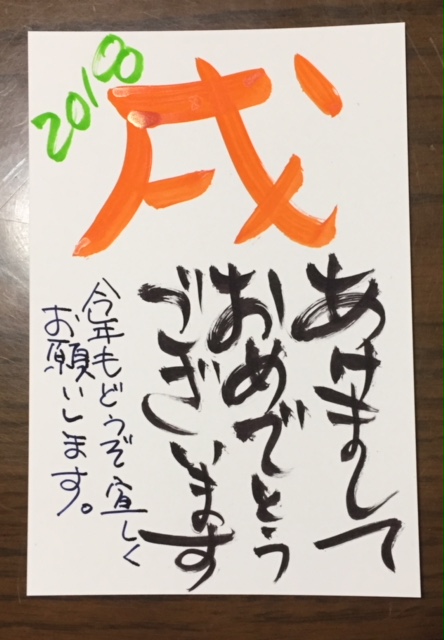 2018
戌
あけまして
おめでとう
ございます
今年もどうぞ宜しく
お願いします。